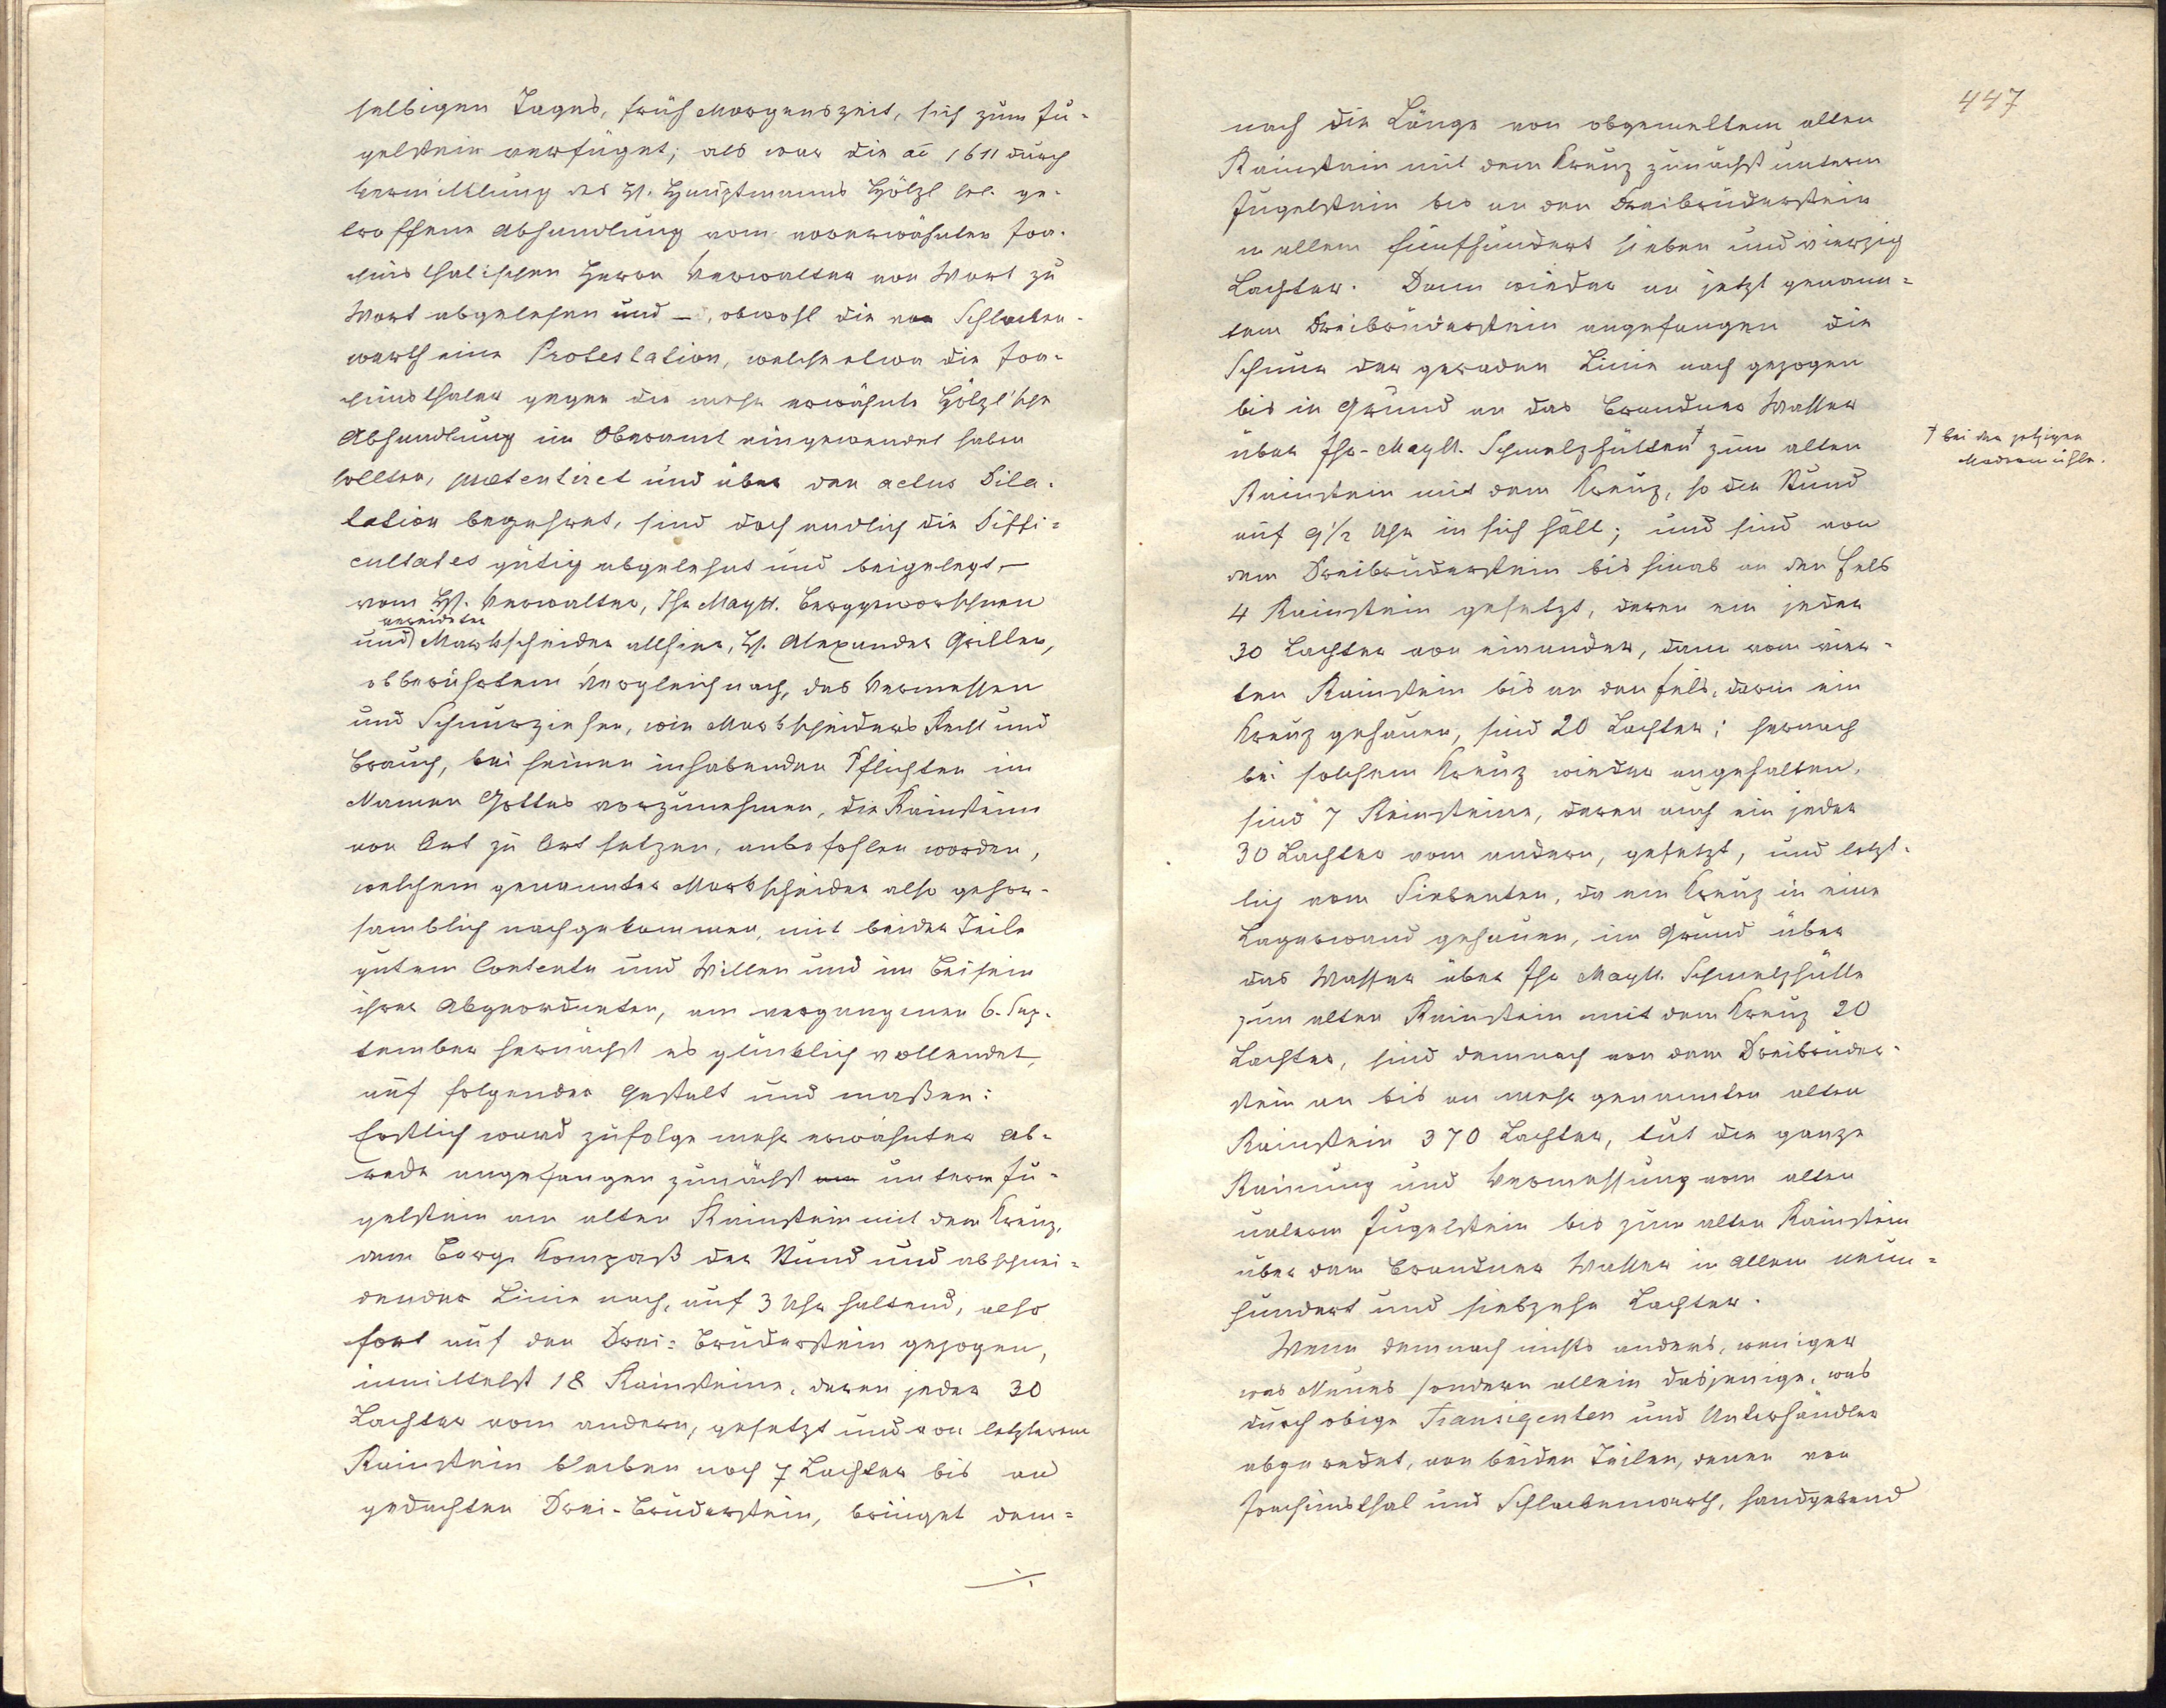 selbigen Tages, früh Morgenszeit, sich zum Ju-
gelstein verfüget; als war die aō 1611 durch
Vermittlung des H. Hauptmanns Hölzl sel. ge-
troffene Abhandlung vom ƶoberwähnten Joa-
chimsthalischen Herrn Verwalter von Wort zu
Wort abgelesen und –, obwohl die von Schlacken-
werth eine Protestation, welche etwa die Joa-
chimsthaler gegen die mehr erwähnte Hölzl'sche
Abhandlung im Oberamt eingewendet haben
sollten, prætentiret und über den actus Dila-
tation begehret, sind doch endlich die Diffi-
cultates gütig abgelehnt und beigelegt, –
vom H. Verwalter, Ihr Maytt. Berggeworschnen
vereideter
und Markscheider allhier, H. Alexander Griller,
obberührtem Vergleich nach, das Vermessen
und Schnurziehen, wie Markscheiders Recht und
Brauch, bei seinen inhabenden Pflichten im
Namen Gottes vorzunehmen, die Rainstein
von Ort zu Ort setzen, anbefohlen worden,
welchem genannter Markscheider also gehor-
samblich nachgekommen, mit beider Teile
gutem Contento und Willen und im Beisein
ihrer Abgeordneten, am vergangenen 6. Sep-
tember hernächst es glücklich vollendet,
auf folgender Gestalt und maßen:
Erstlich ward zufolge mehr erwähnter Ab-
rede angefangen zunächst am unterm Ju-
gelstein am alten Rainstein mit dem Kreuz,
dem Berg Kompaß der Stund und abschnei-
dender Linie nach, auf 3 Uhr haltend, also
fort auf den Drei-Brüderstein gezogen,
inmittelst 18 Rainsteine, deren jeder 30
Lachter vom andern, gesetzt und von letzterem
Rainstein bleiben noch 7 Lachter bis an
gedachten Drei-Brüderstein, bringet dem-
447
nach die Länge von obgemeltem alten
Rainstein mit dem Kreuz zunächst unterm
Jugelstein bis an den Dreibrüderstein
in allem fünfhundert sieben und vierzig
Lachter. Dann wieder an jetzt genann-
tem Dreibrüderstein angefangen die
Schnur der geraden Linie nach gezogen
bis in Grund an das Brandner Wasser
über Ihr-Maytt. Schmelzhütten † zum alten
Rainstein mit dem Kreuz, so die Stund
auf 9 1/2 Uhr in sich hält; und sind von
dem Dreibrüderstein bis hinab an den Fels
4 Rainstein gesetzt, deren ein jeder
30 Lachter von einander, dann vom vier-
ten Rainstein bis an den Fels, darin ein
Kreuz gehauen, sind 20 Lachter; hernach
bei solchem Kreuz wieder angehalten,
sind 7 Rainsteine, deren auch ein jeder
30 Lachter vom andern, gesetzt, und letzt-
lich vom Siebenten, da ein Kreuz in eine
Lagerwand gehauen, im Grund über
das Wasser über Ihr Maytt. Schmelzhütte
zum alten Rainstein mit dem Kreuz 20
Lachter, sind demnach von dem Dreibrüder-
stein an bis an mehr genannten alten
Rainstein 370 Lachter, tut die ganze
Rainung und Vermessung vom alten
unterm Jugelstein bis zum alten Rainstein
über dem Brandner Wasser in allem neun-
hundert und siebzehn Lachter.
Wenn demnach nichts anders, weniger
was Neues sondern allein dasjenige, was
durch obige Transigenten und Unterhändler
abgeredet, von beiden Teilen, denen von
Joachimsthal und Schlackenwerth, handgebend
† bei der jetzigen